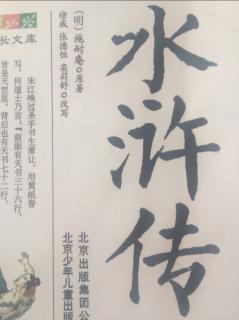 水浒传
(明)施耐庵◎原著
徐威 张德恒 栾莉舒◎改写
北京出版集团公
北京少年儿童出版
长文库
宋江唤过圣手书生萧让，用黄纸誊
写。何道士乃言：“前面有天书三十六行，
皆是天罡星。背后也有天书七十二行，